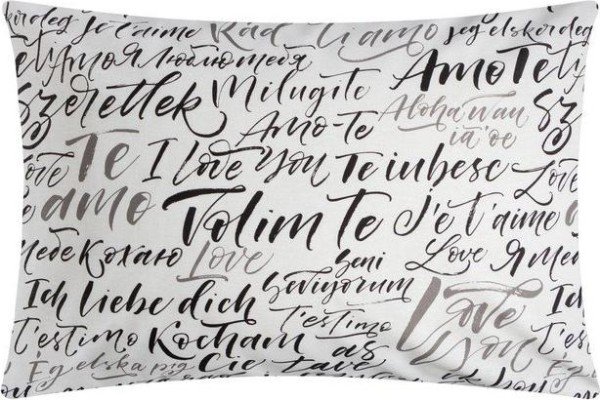 jeg elsker deg je t'aime Rád Ti amo jeg elsker deg
Amo я люблю тебя Amo Te
Szeretlek Milugite Aloha wau
Amo-te ia 'oe Sz
Te amo I love you Te iubesc Love
Love Volim te Je t'aime a
тебе Кохаю Love Seni Love Я
Ich liebe dich Seviyorum Love you
t'estimo Kocham t'estimo
Ég elska þig Cie as